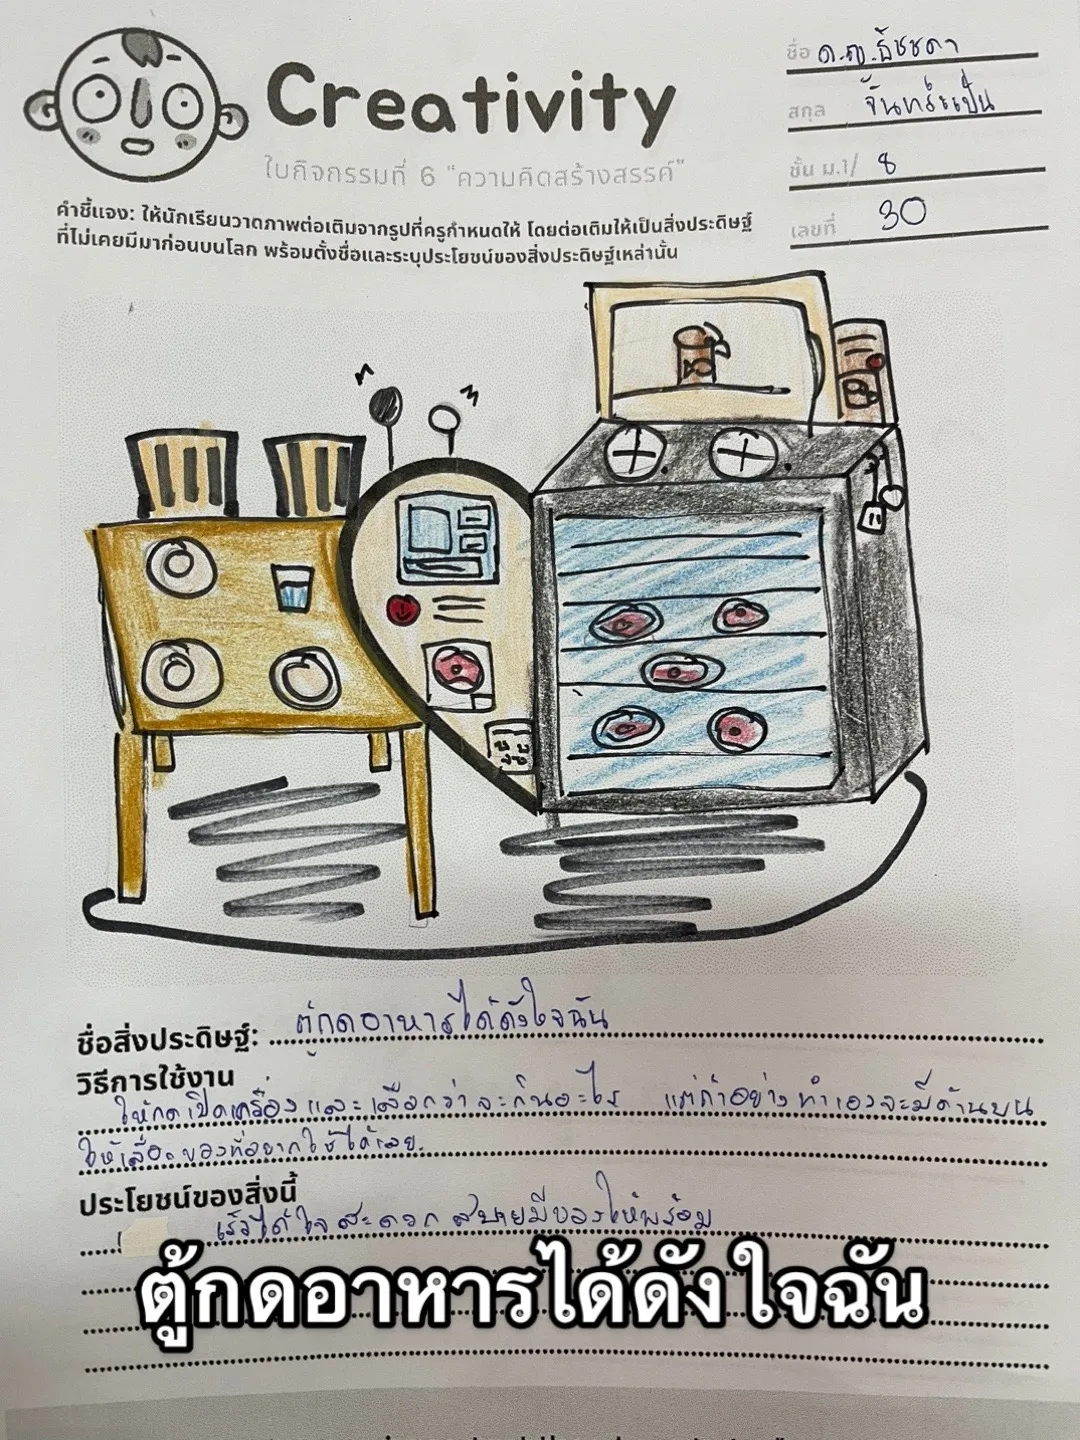 Creativity
ใบกิจกรรมที่ 6 "ความคิดสร้างสรรค์"
ชื่อ ด.ญ.ธัชชดา
สกุล จันทร์ะเป็น
ชั้น ม.1/ 8
เลขที่ 30
คำชี้แจง: ให้นักเรียนวาดภาพต่อเติมจากรูปที่ครูกำหนดให้ โดยต่อเติมให้เป็นสิ่งประดิษฐ์
ที่ไม่เคยมีมาก่อนบนโลก พร้อมตั้งชื่อและระบุประโยชน์ของสิ่งประดิษฐ์เหล่านั้น
ชื่อสิ่งประดิษฐ์: ตู้กดอาหารได้ดังใจฉัน
วิธีการใช้งาน
ให้กดเปิดเครื่อง และเลือกว่าจะกินอะไร แต่ถ้าอย่างทำเองจะมีด้านบน
ให้เลือกของที่อยากใช้ได้เลย
ประโยชน์ของสิ่งนี้
เร็วได้ใจ สะดวก สบายมีของให้พร้อม
ตู้กดอาหารได้ดังใจฉัน